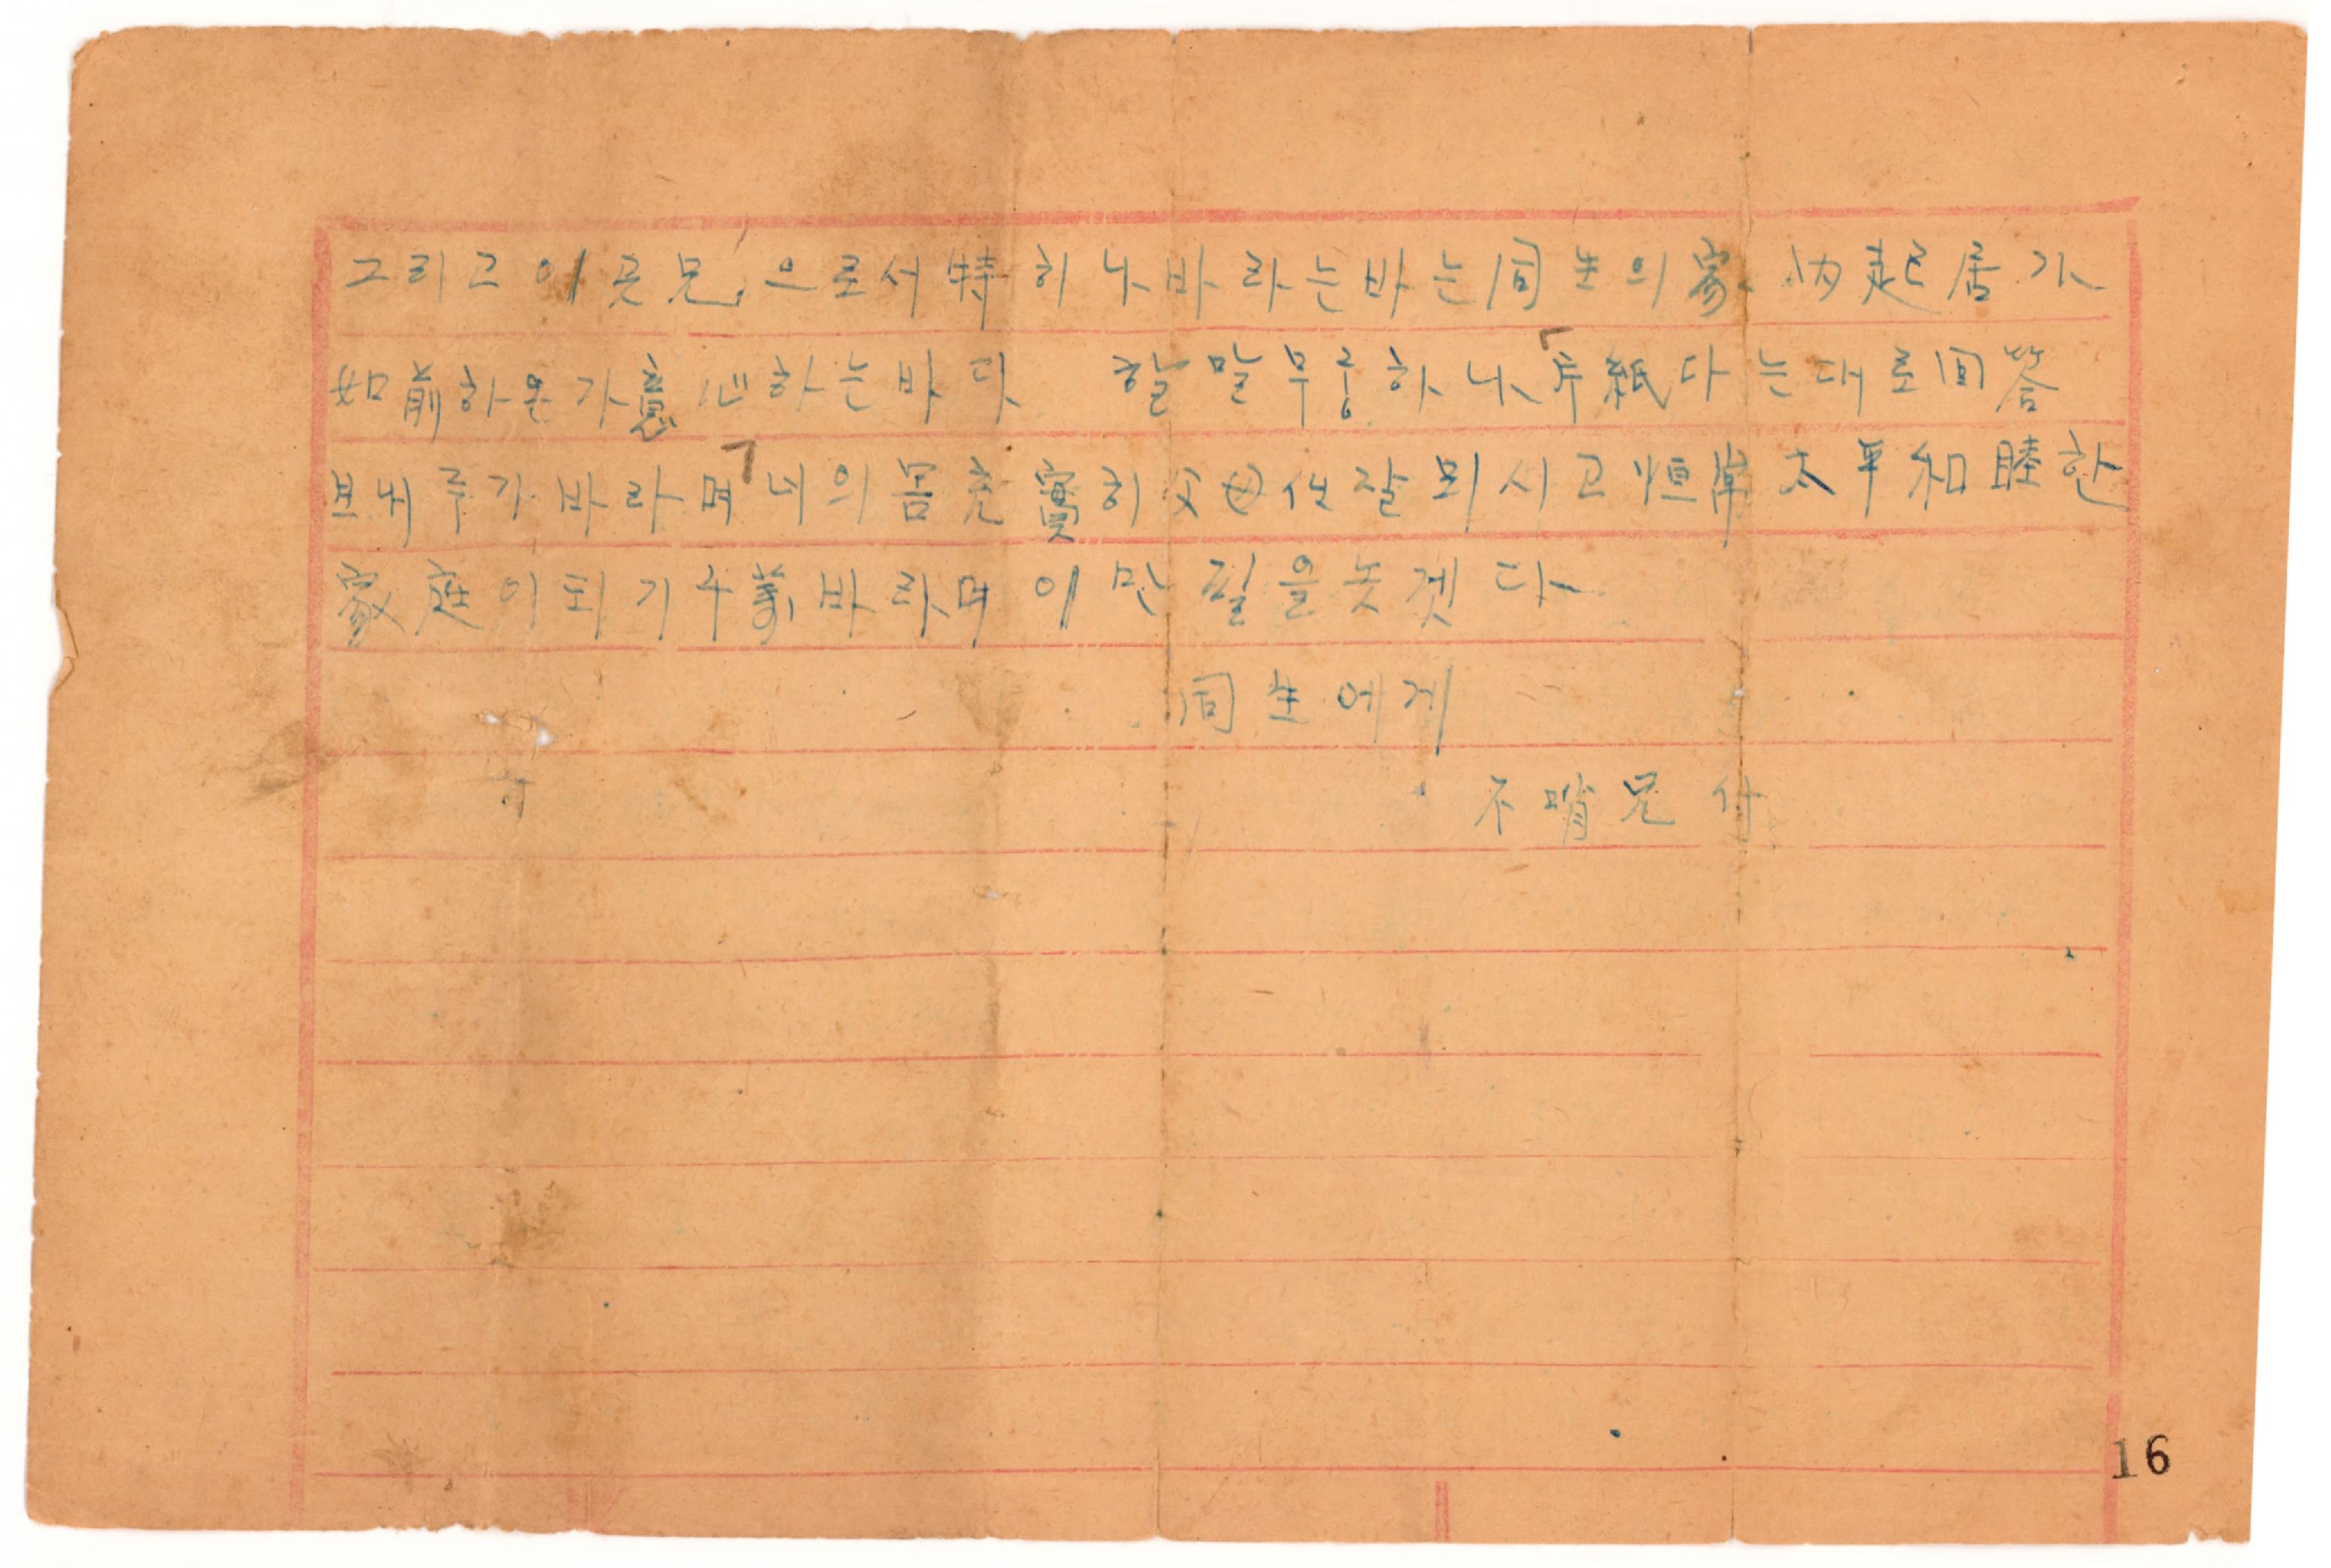 그리고 이 곳 兄으로서 特히 나 바라는 바는 同生의 家內 起居가
如前하온가 意心하는 바다 할 말 무궁하나 片紙 다는 대로 回答
보내주가 바라며 너의 몸 充實히 父母任 잘 뫼시고 恒常 太平 和睦한
家庭이 되기 千萬 바라며 이만 필을 놋겟다
同生에게
不哨兄 付
16